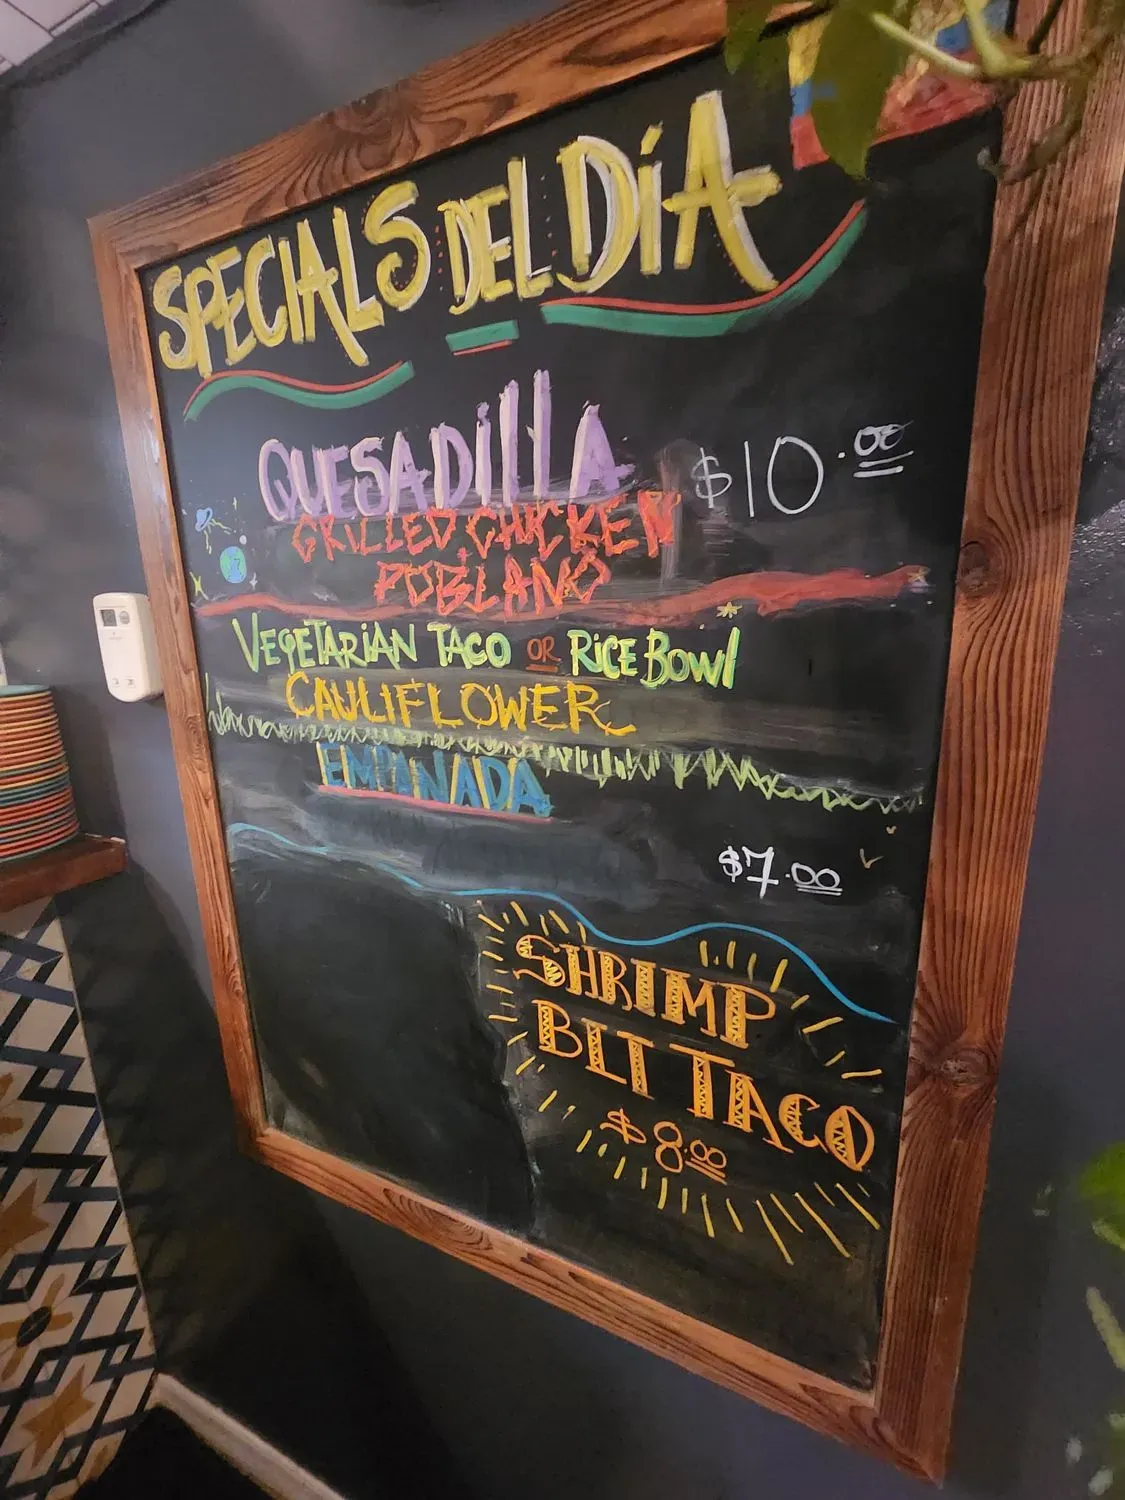 SPECIALS DEL DíA
QUESADillA $10.00
GRILLED CHICKEN
POBLANO
VEgETARiAN TACO OR RiCE BOWl
CAULIFLOWER
EMPANADA
$7.00
SHRIMP
BLT TACO
$8.00